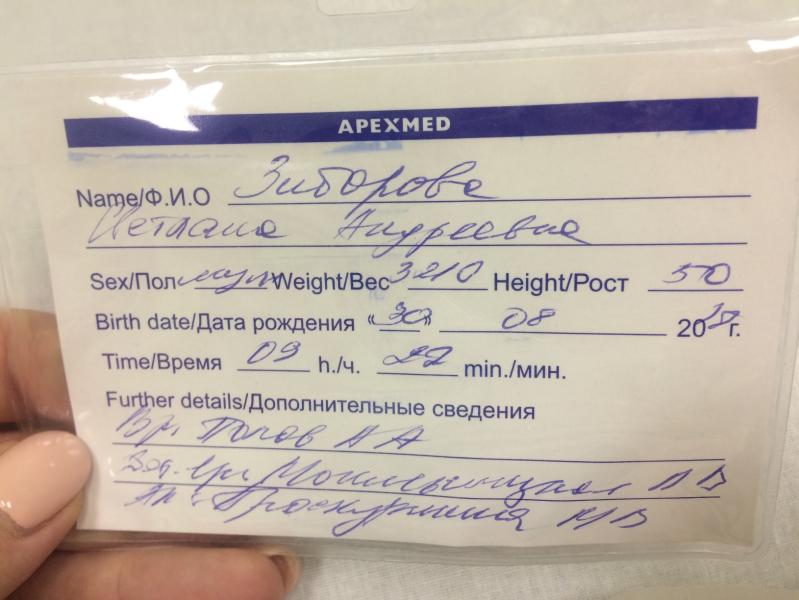 APEXMED
Name/Ф.И.О Зиборова
Светлана Андреевна
Sex/Пол муж Weight/Вес 3210 Height/Рост 50
Birth date/Дата рождения "30" 08 20 г.
Time/Время 09 h./ч. 22 min./мин.
Further details/Дополнительные сведения
Вр. Попов АА
Вр.
Проскурнина